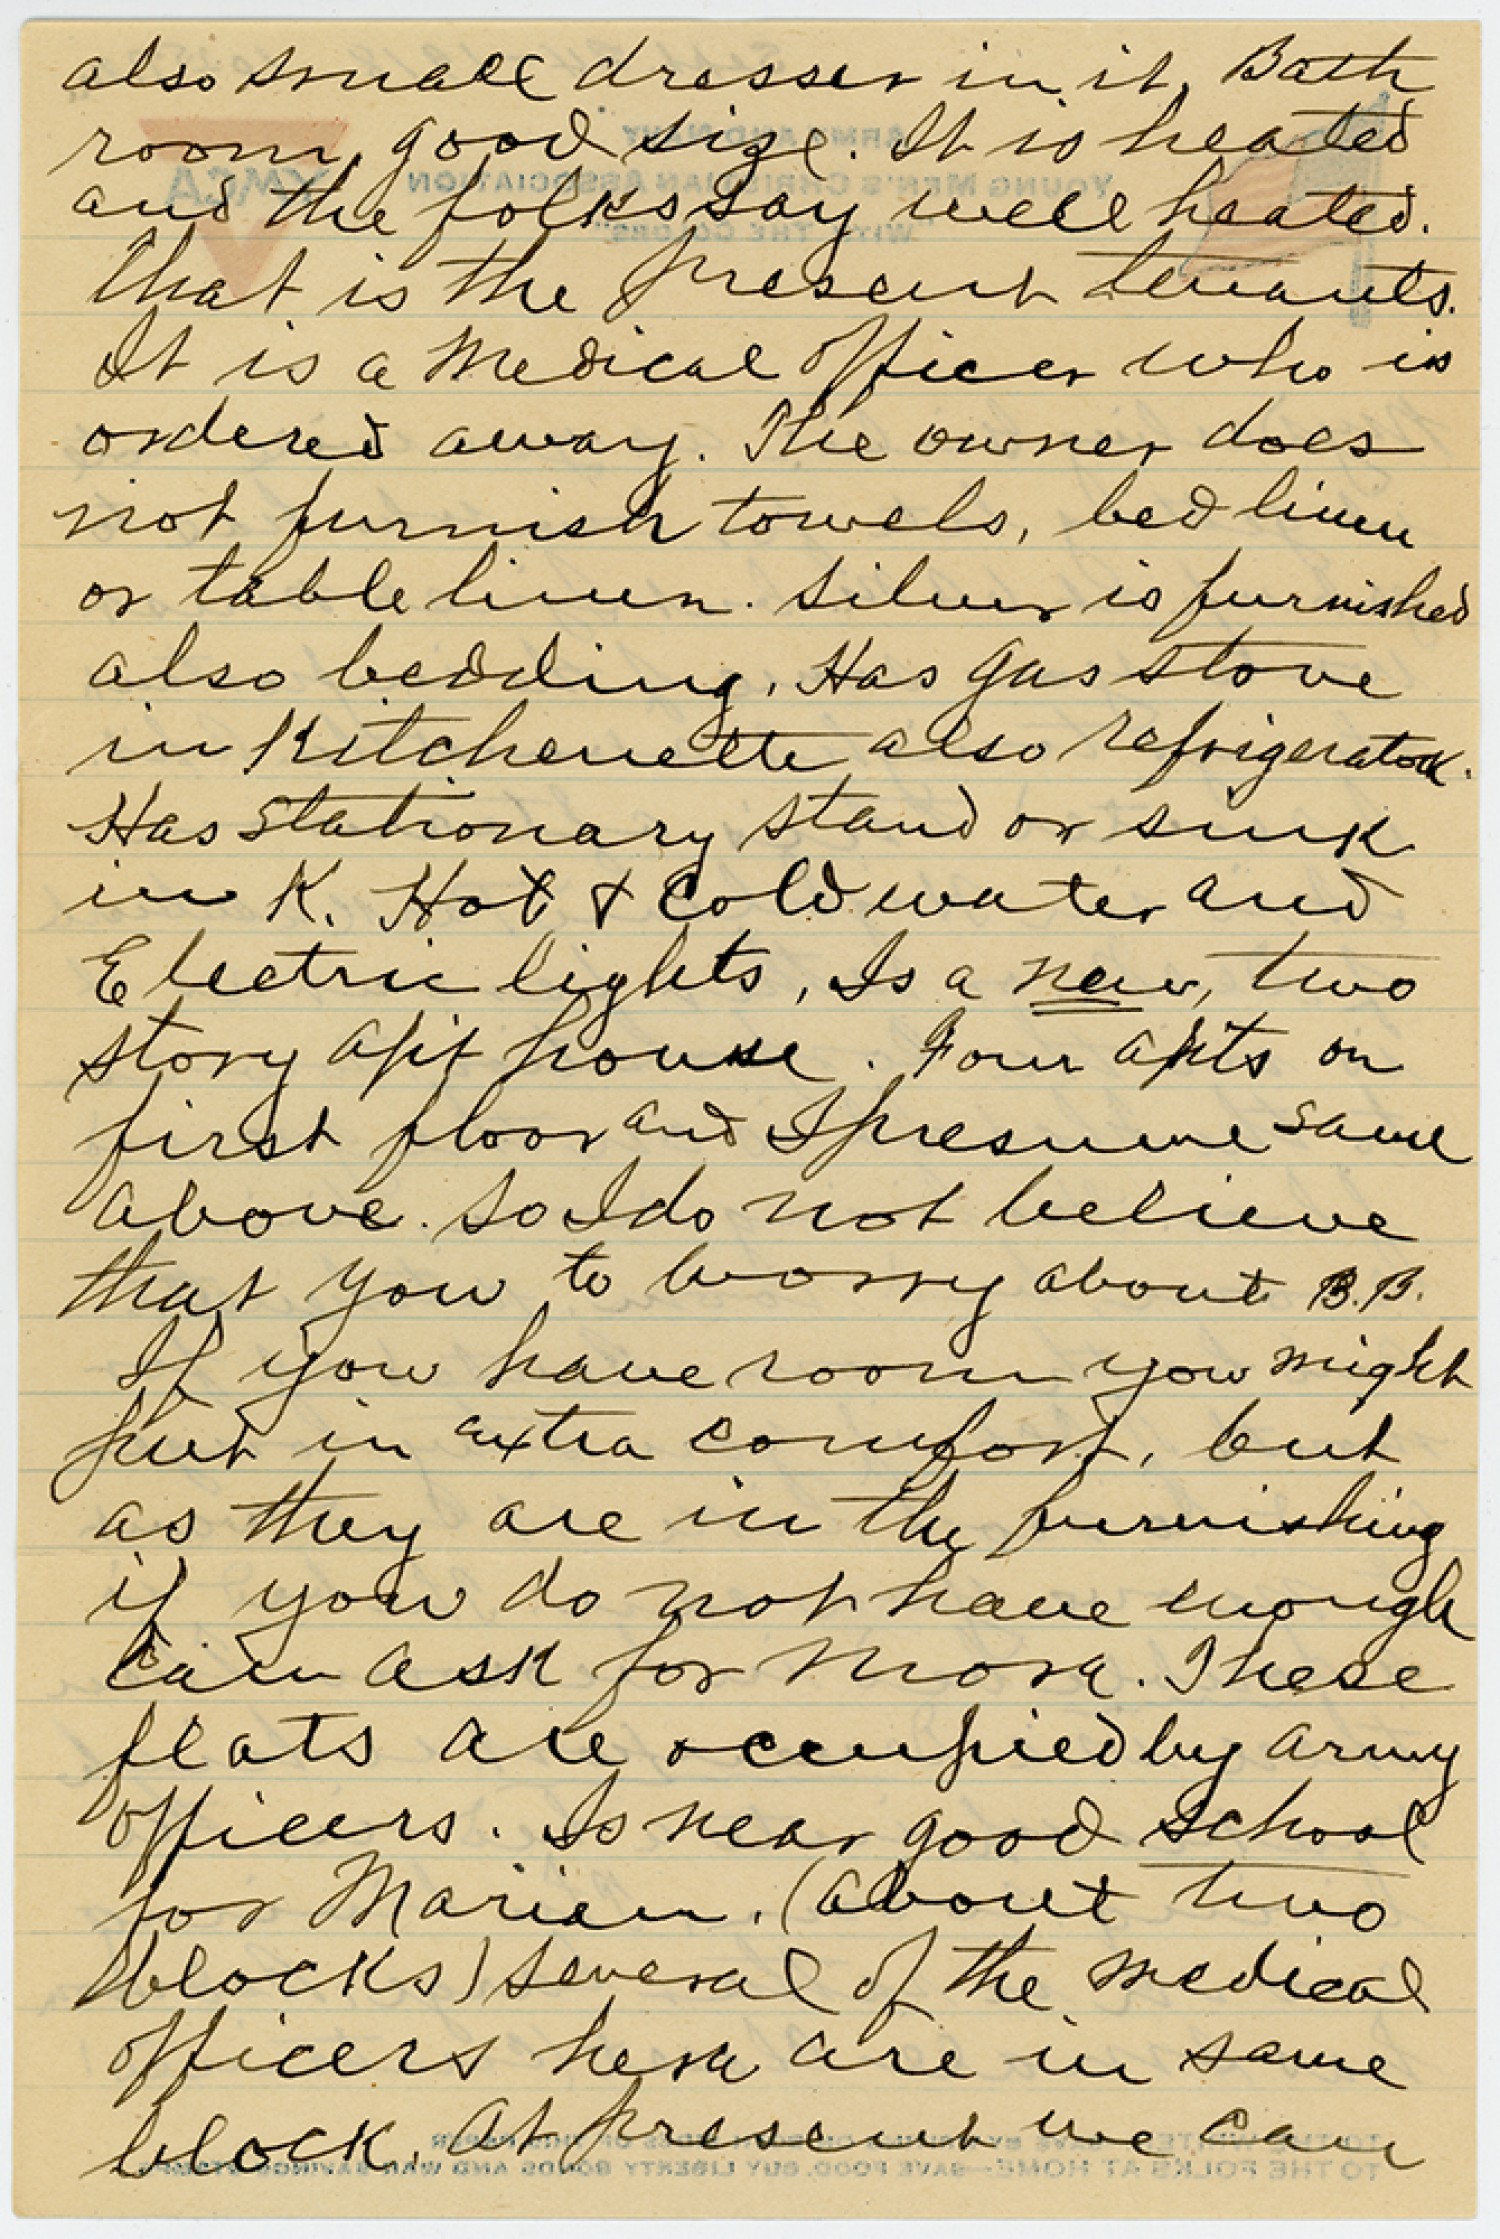 also small dresser in it. Bath
room good size. It is heated
and the folks say well heated.
that is the present tenants.
It is a medical officer who is
ordered away. The owner does
not furnish towels, bed linen
or table linen. Silver is furnished
also bedding. Has gas stove
in Kitchenette also refrigerator.
Has stationary stand or sink
in K. Hot & cold water and
Electric lights, Is a new, two
story apt house. Four apts on
first floor and I presume same
above. So I do not believe
that you to worry about B.B.
If you have room you might
put in extra comfort, but
as they are in the furnishing
if you do not have enough
can ask for more. These
flats are occupied by army
officers. Is near good school
for Marian. (about two
blocks) several of the medical
officers here are in same
block. At present we can